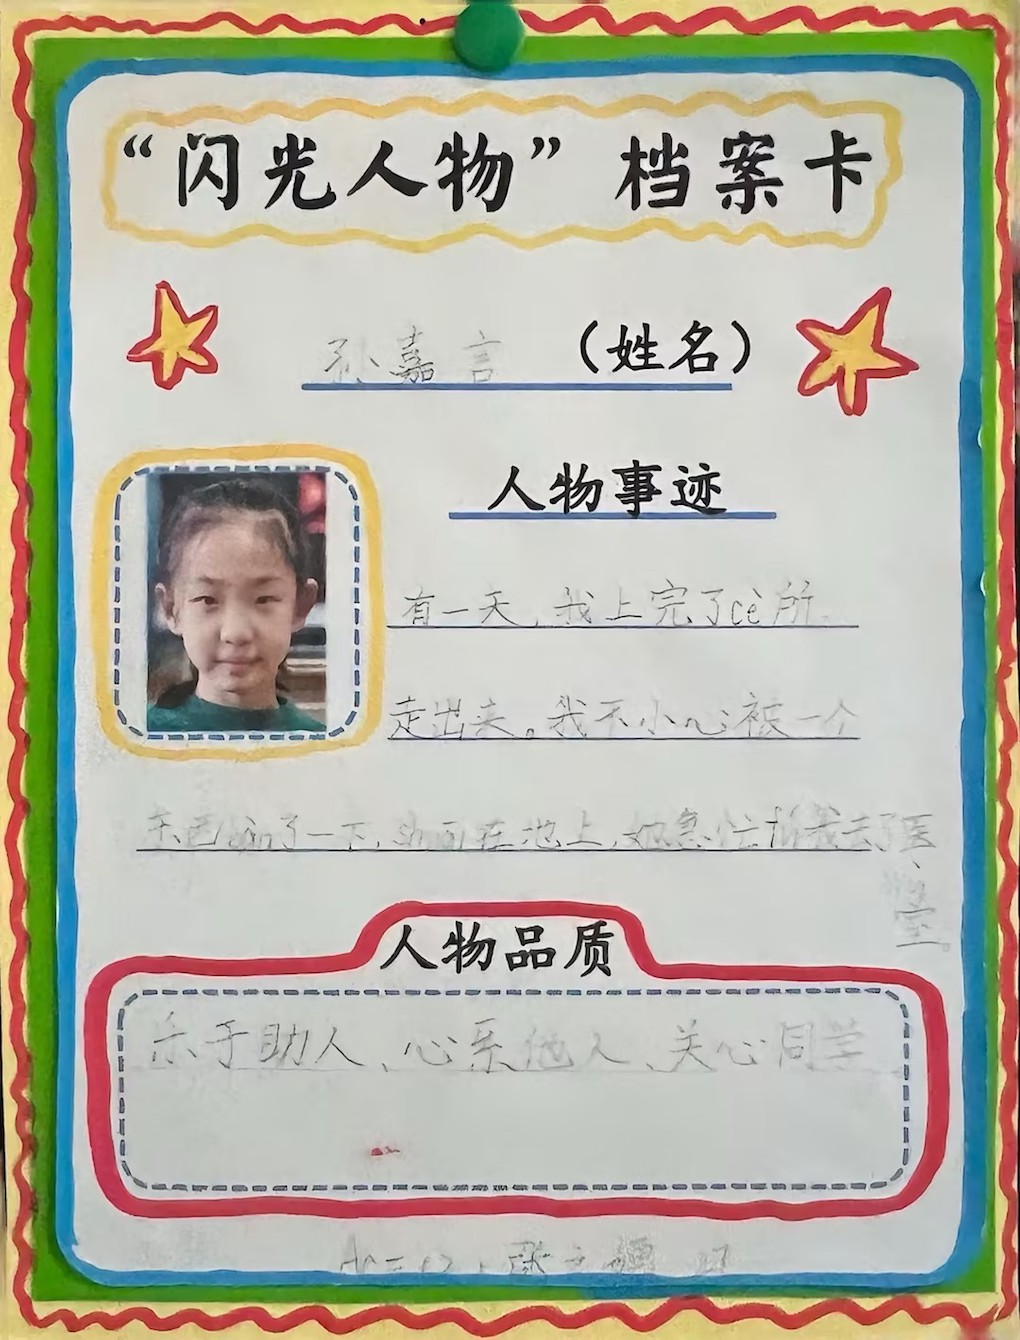 “闪光人物”档案卡
孙嘉言（姓名）
人物事迹
有一天,我上完了cè所
走出来。我不小心被一个
了一下,在地上,她急忙我去了医
室。
人物品质
乐于助人、心系他人、关心同学